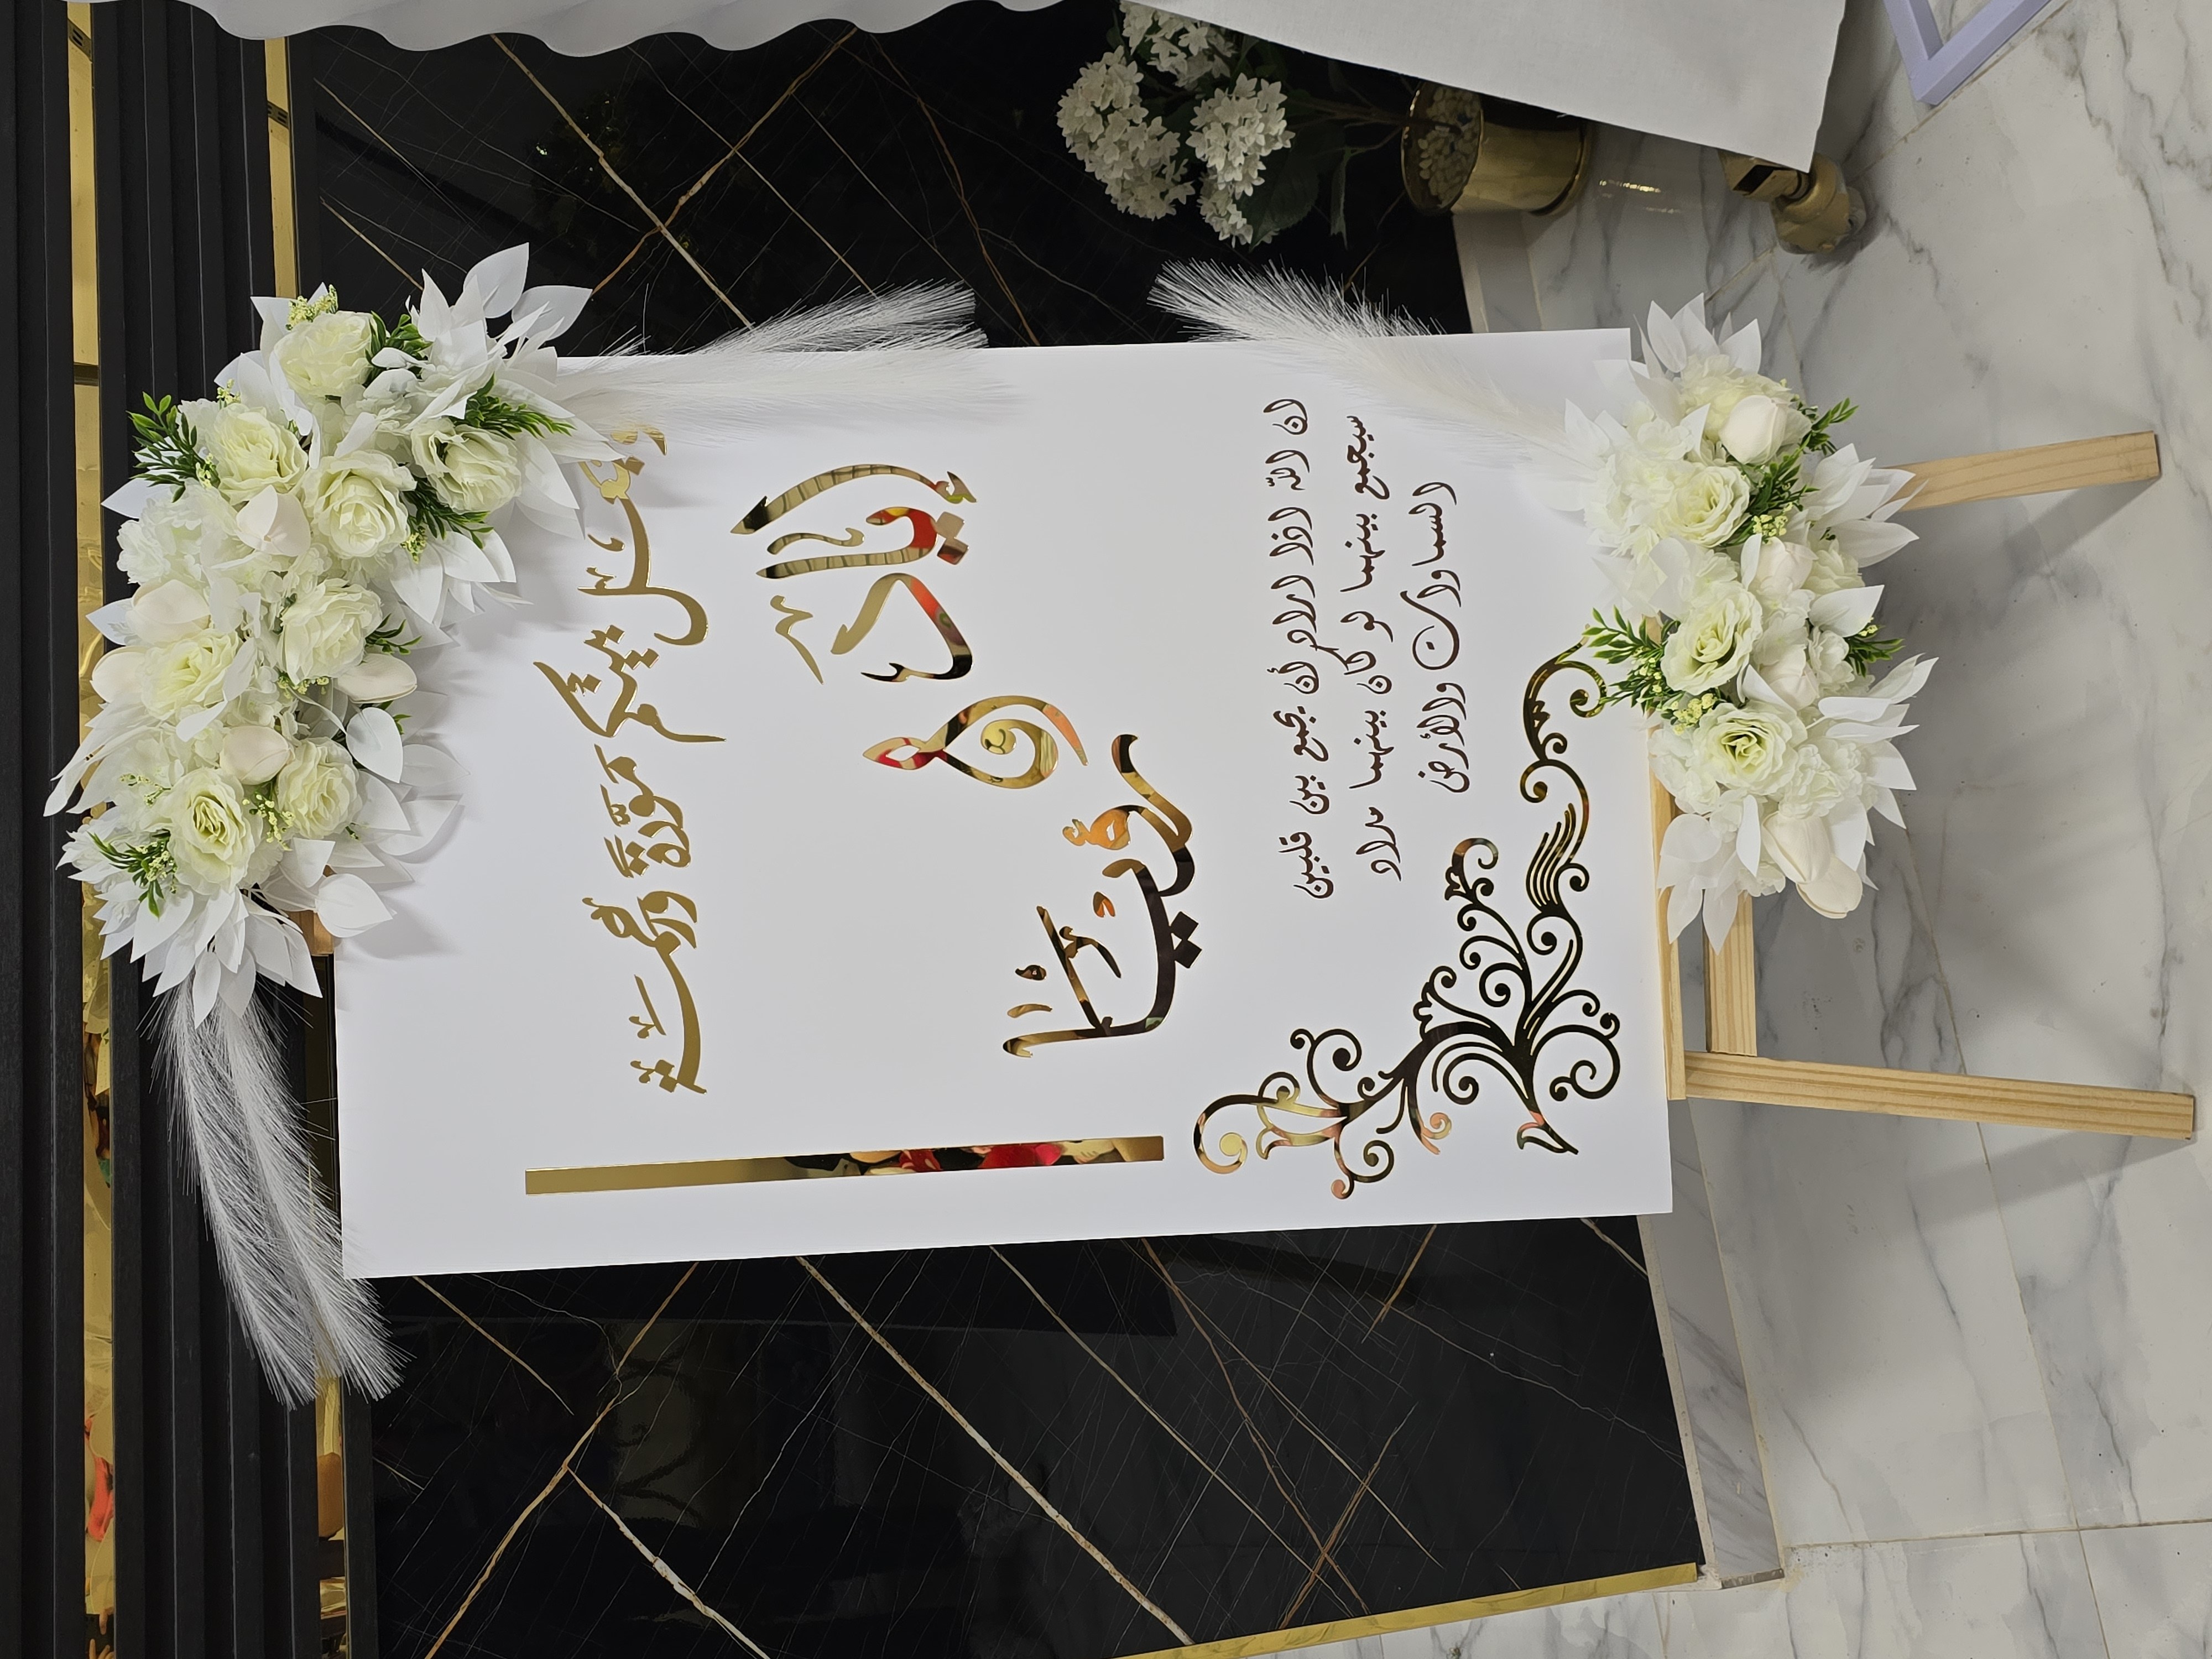 وجعل بينكم مودة ورحمة
إياد
و
رؤيا
ان الله اذا اراد أن يجمع بين قلبين
سيجمع بينهما لو كان بينهما مداد
السماوات والأرض